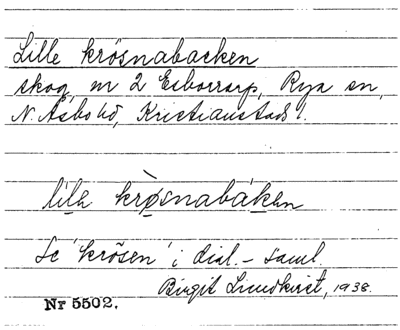 Lille krösnabacken
skog, nr 2 Esborrarp, Rya sn,
N. Åsbo hd, Kristianstads l.
lìla krø̀snabáken
Se 'krösen' i dial.-saml.
Birgit Lundkvist, 1938.
Nr 5502.